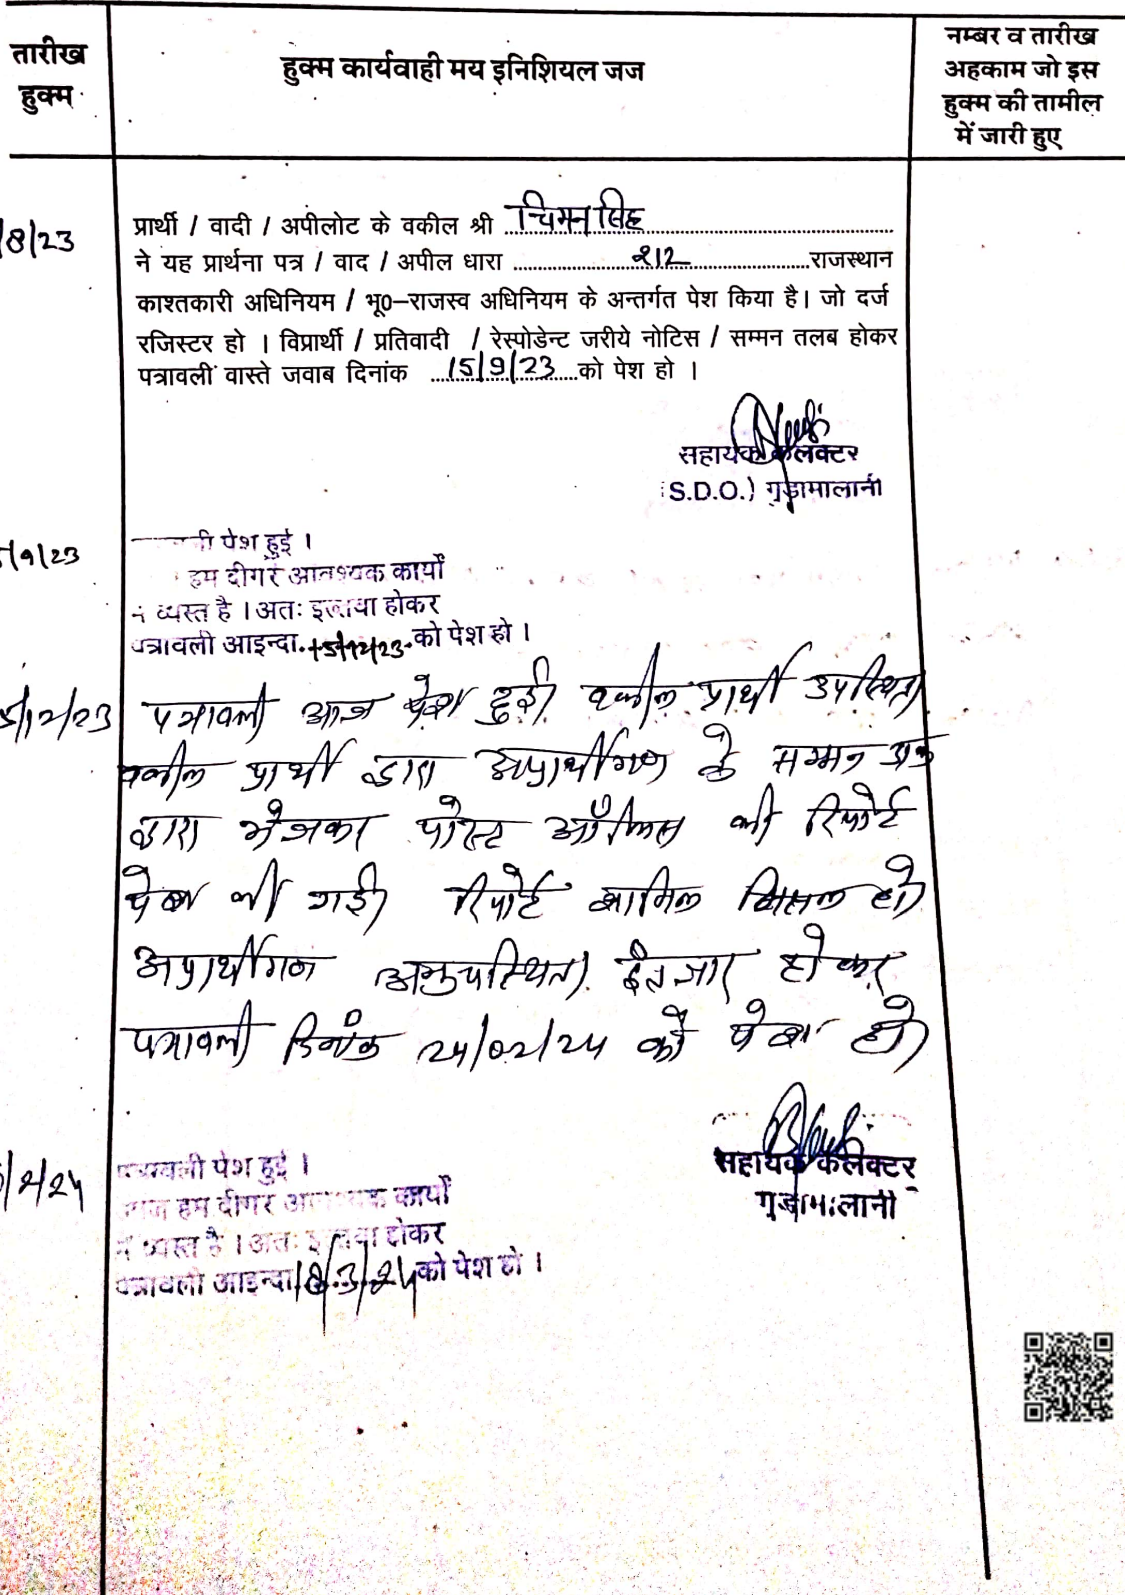 तारीख
हुक्म
हुक्म कार्यवाही मय इनिशियल जज
नम्बर व तारीख
अहकाम जो इस
हुक्म की तामील
में जारी हुए
/8/23
प्रार्थी / वादी / अपीलोट के वकील श्री चिमन सिंह
ने यह प्रार्थना पत्र / वाद / अपील धारा 212 राजस्थान
काश्तकारी अधिनियम / भू०-राजस्व अधिनियम के अन्तर्गत पेश किया है। जो दर्ज
रजिस्टर हो । विप्रार्थी / प्रतिवादी / रेस्पोडेन्ट जरीये नोटिस / सम्मन तलब होकर
पत्रावली वास्ते जवाब दिनांक 15/9/23 को पेश हो ।
सहायक कलक्टर
(S.D.O.) गुड़ामालानी
/9/23
पेश हुई ।
हम दीगर आवश्यक कार्यों
में व्यस्त है । अतः इल्तवा होकर
पत्रावली आइन्दा 15/12/23 को पेश हो ।
5/12/23
पत्रावली आज पेश हुई। वकील प्रार्थी उपस्थित।
वकील प्रार्थी द्वारा अप्रार्थीगण के सम्मन डाक
द्वारा भेजकर पोस्ट ऑफिस की रिपोर्ट
पेश की गई। रिपोर्ट शामिल मिसल हो।
अप्रार्थीगण अनुपस्थित। इंतजार होकर
पत्रावली दिनांक 24/02/24 को पेश हो।
सहायक कलक्टर
गुड़ामालानी
/2/24
पत्रावली पेश हुई ।
आज हम दीगर आवश्यक कार्यों
में व्यस्त है । अतः इल्तवा होकर
पत्रावली आइन्दा 18/3/24 को पेश हो ।